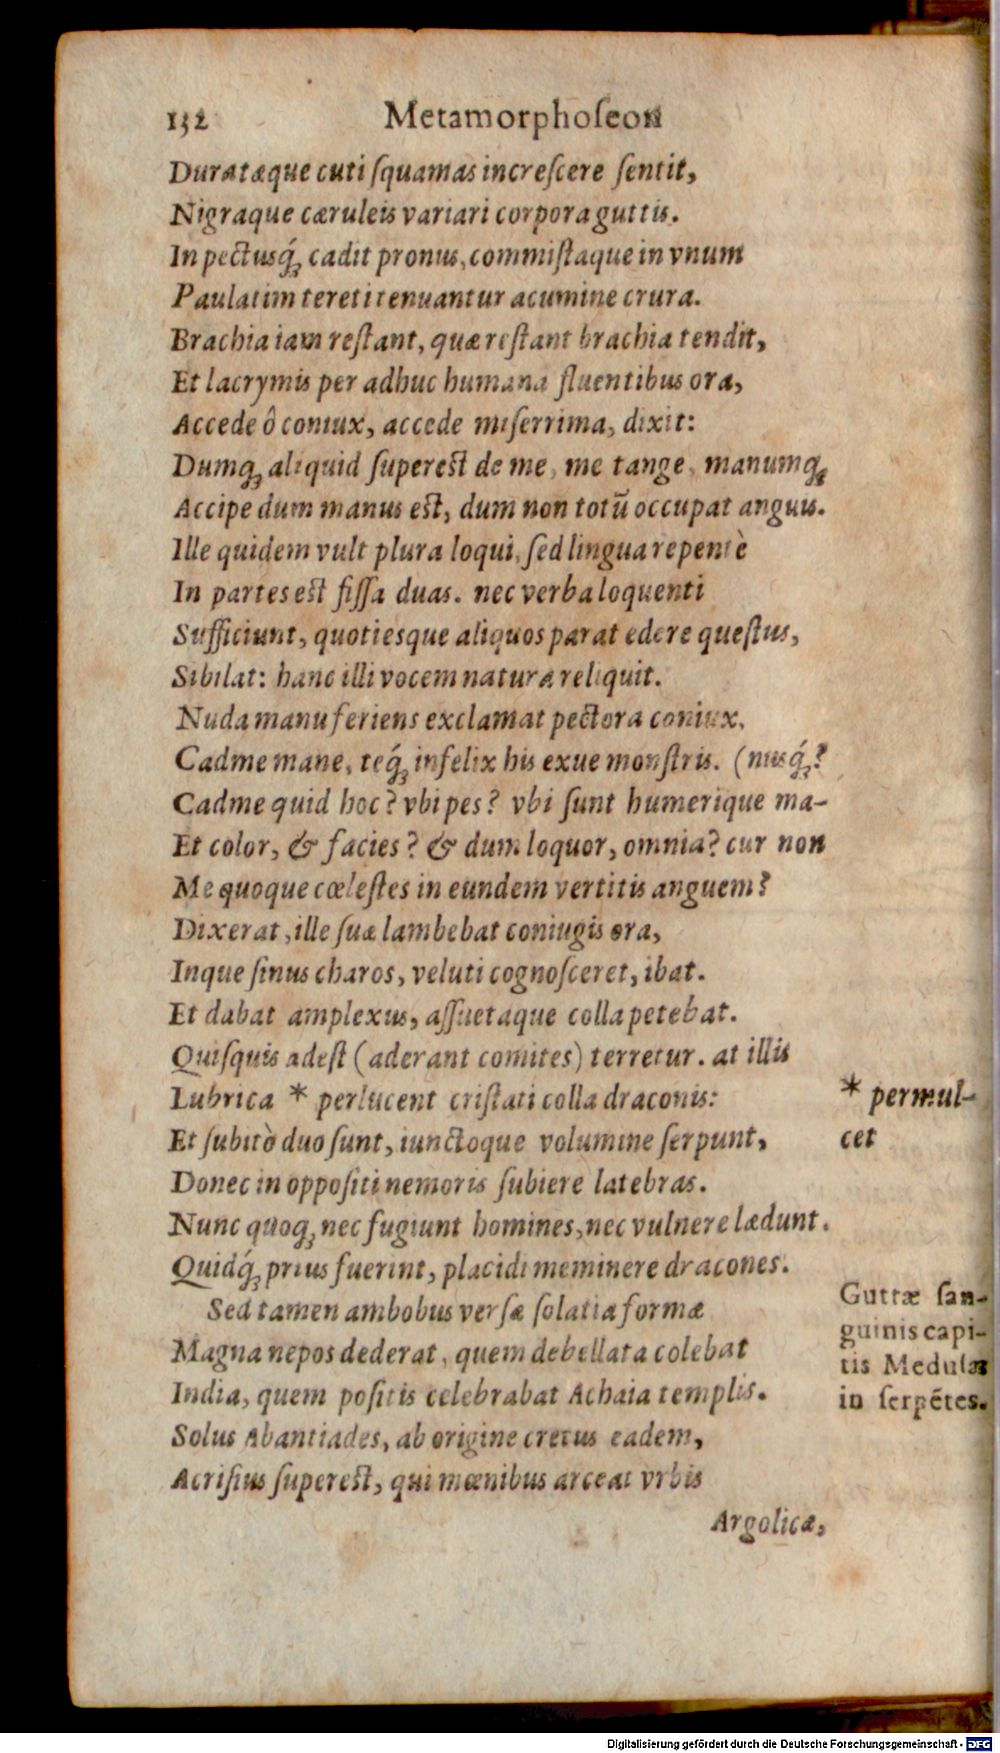 132 Metamorphoſeon
Duratæque cuti ſquamas increſcere ſentit,
Nigraque cæruleis variari corpora guttis.
In pectusq́ꝫ cadit pronus, commiſtaque in vnum
Paulatim tereti tenuantur acumine crura.
Brachia iam reſtant, quæ reſtant brachia tendit,
Et lacrymis per adhuc humana fluentibus ora,
Accede ô coniux, accede miſerrima, dixit:
Dumqꝫ aliquid ſupereſt de me, me tange, manumqꝫ
Accipe dum manus eſt, dum non totũ occupat anguis.
Ille quidem vult plura loqui, ſed lingua repentè
In partes eſt fiſſa duas. nec verba loquenti
Sufficiunt, quotiesque aliquos parat edere queſtus,
Sibilat: hanc illi vocem natura reliquit.
Nuda manu feriens exclamat pectora coniux,
Cadme mane, teq́ꝫ infelix his exue monſtris. (nusq́ꝫ?
Cadme quid hoc? vbi pes? vbi ſunt humerique ma-
Et color, & facies? & dum loquor, omnia? cur non
Me quoque cœleſtes in eundem vertitis anguem?
Dixerat, ille ſuæ lambebat coniugis ora,
Inque ſinus charos, veluti cognoſceret, ibat.
Et dabat amplexus, aſſuetaque colla petebat.
Quiſquis adeſt (aderant comites) terretur. at illis
Lubrica * perlucent criſtati colla draconis:
* permul-
cet
Et ſubitò duo ſunt, iunctoque volumine ſerpunt,
Donec in oppoſiti nemoris ſubiere latebras.
Nunc quoqꝫ nec fugiunt homines, nec vulnere lædunt.
Quidq́ꝫ prius fuerint, placidi meminere dracones.
Sed tamen ambobus verſæ ſolatia formæ
Guttæ ſan-
guinis capi-
tis Medulæ
in ſerpẽtes.
Magna nepos dederat, quem debellata colebat
India, quem poſitis celebrabat Achaia templis.
Solus Abantiades, ab origine cretus eadem,
Acriſius ſupereſt, qui mœnibus arceat vrbis
Argolicæ,
Digitalisierung gefördert durch die Deutsche Forschungsgemeinschaft - DFG